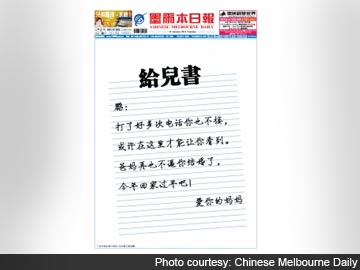 墨爾本日報
CHINESE MELBOURNE DAILY
給兒書
鹏：
打了好多次电话你也不接，
或许在这里才能让你看到。
爸妈再也不逼你结婚了，
今年回家过年吧！
爱你的妈妈
Photo courtesy: Chinese Melbourne Daily